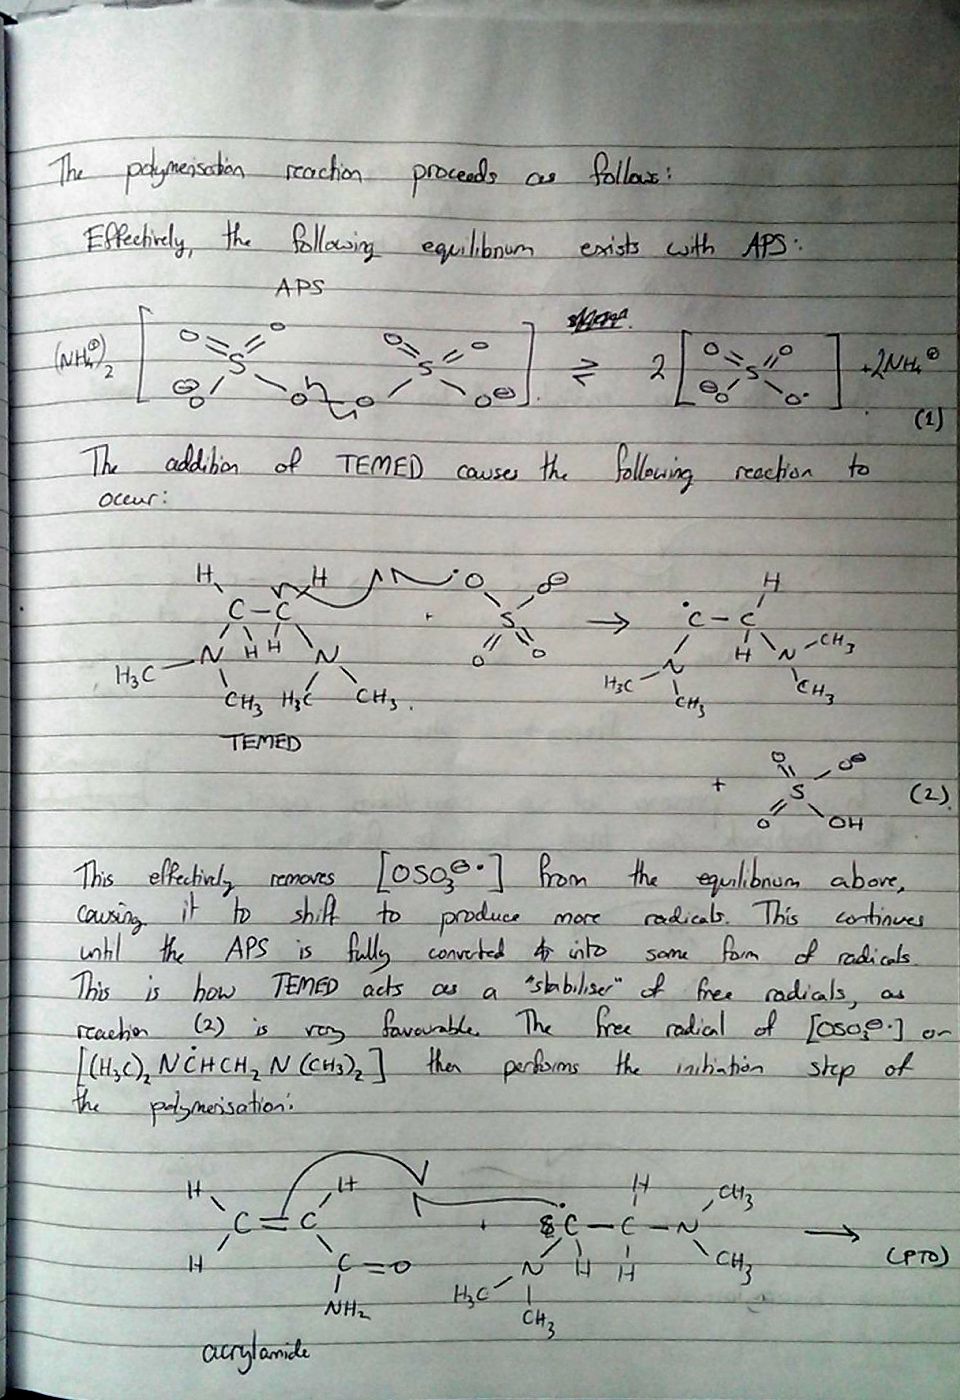 The polymerisation reaction proceeds as follows:
Effectively, the following equilibrium exists with APS:
APS
(NH₄⊕)₂ [ O O S ⊖O O O O O S O⊖ ] ⇌ 2 [ O O S ⊖O O• ] + 2NH₄⊕
(1)
The addition of TEMED causes the following reaction to
occur:
H H •O O⊖ H
C – C + S → •C – C
N H H N O O N H N – CH₃
H₃C CH₃ H₃C CH₃. H₃C CH₃ CH₃
TEMED
+ O O⊖ S O OH (2).
This effectively removes [OSO₃⊖•] from the equilibrium above,
causing it to shift to produce more radicals. This continues
until the APS is fully converted into some form of radicals.
This is how TEMED acts as a "stabiliser" of free radicals, as
reaction (2) is very favourable. The free radical of [OSO₃⊖•] or
[(H₃C)₂ NĊHCH₂ N (CH₃)₂] then performs the initiation step of
the polymerisation:
H H H CH₃
C = C + •C – C – N →
H C = O N H H CH₃ (PTO)
NH₂ H₃C CH₃
acrylamide